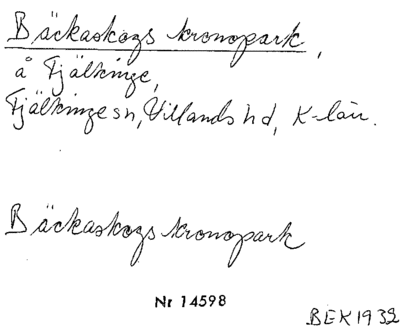 Bäckaskogs kronopark,
å Fjälkinge,
Fjälkinge sn, Villands hd, K-län.
Bäckaskogs kronopark
Nr 14598
BEK 1932